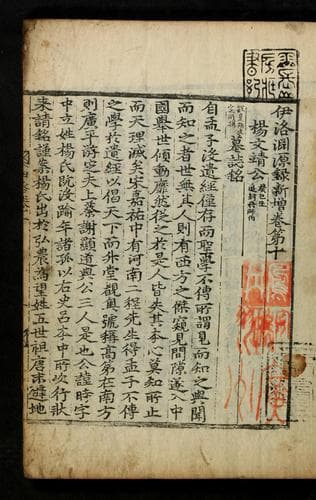 伊洛淵源録新增卷第十
楊文靖公
墓誌銘
自孟子没遺經僅存而聖學不傳所謂見而知之與聞
而知之者世無其人則有西方之傑窺見間隙遂入中
國舉世傾動靡然從之於是人皆失其本心莫知所止
而天理滅矣宋嘉祐中有河南二程先生得孟子不傳
之學於遺經以倡天下而升堂覩奥號稱髙弟在南方
則廣平游定夫上蔡謝顯道與公三人是也公諱時字
中立姓楊氏既没踰年諸孤以右史吕本中所次行狀
來請銘謹案楊氏出於弘農為望姓五世祖唐末避地